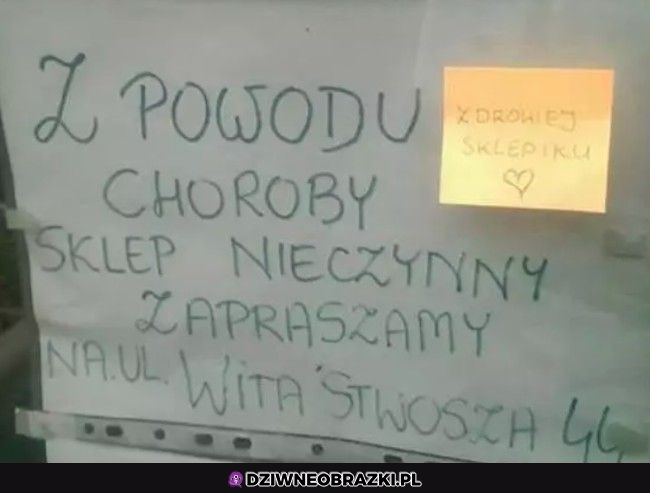 Z POWODU
CHOROBY
SKLEP NIECZYNNY
ZAPRASZAMY
NA.UL. WITA STWOSZA 44
ZDROWIEJ
SKLEPIKU
♡
DZIWNEOBRAZKI.PL